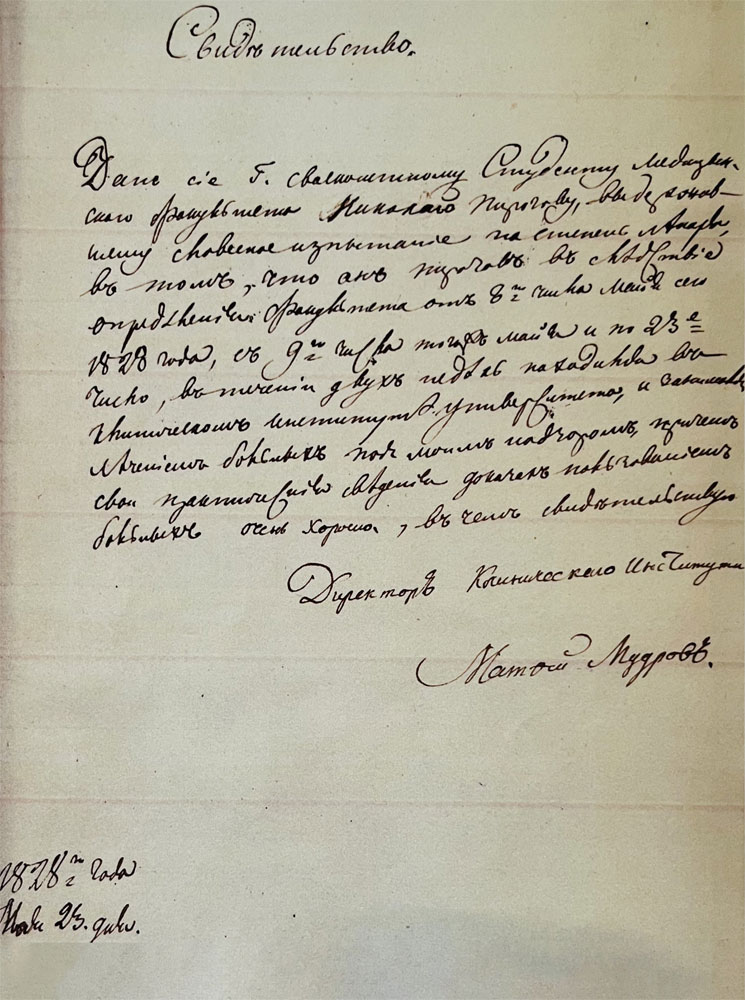 Свидѣтельство.
Данъ сіе Г. своекоштному Студенту Медицин-
скаго факультета Николаю Пирогову, выдержав-
шему словесное испытаніе на степень лѣкаря,
въ томъ, что онъ Пироговъ въ слѣдствіе
опредѣленія факультета отъ 8го числа Майя сего
1828 года, съ 9го числа тогожъ майя и по 23е
число, въ теченіи двухъ недѣль находился въ
клиническомъ институтѣ университета, и занимался
лѣченіемъ больныхъ подъ моимъ надзоромъ, причемъ
свои практическія свѣденія доказалъ пользованіемъ
больныхъ очень хорошо, въ чемъ свидѣтельствую
Директоръ Клиническаго Института
Матѳей Мудровъ.
1828го года
Майя 23. дня.